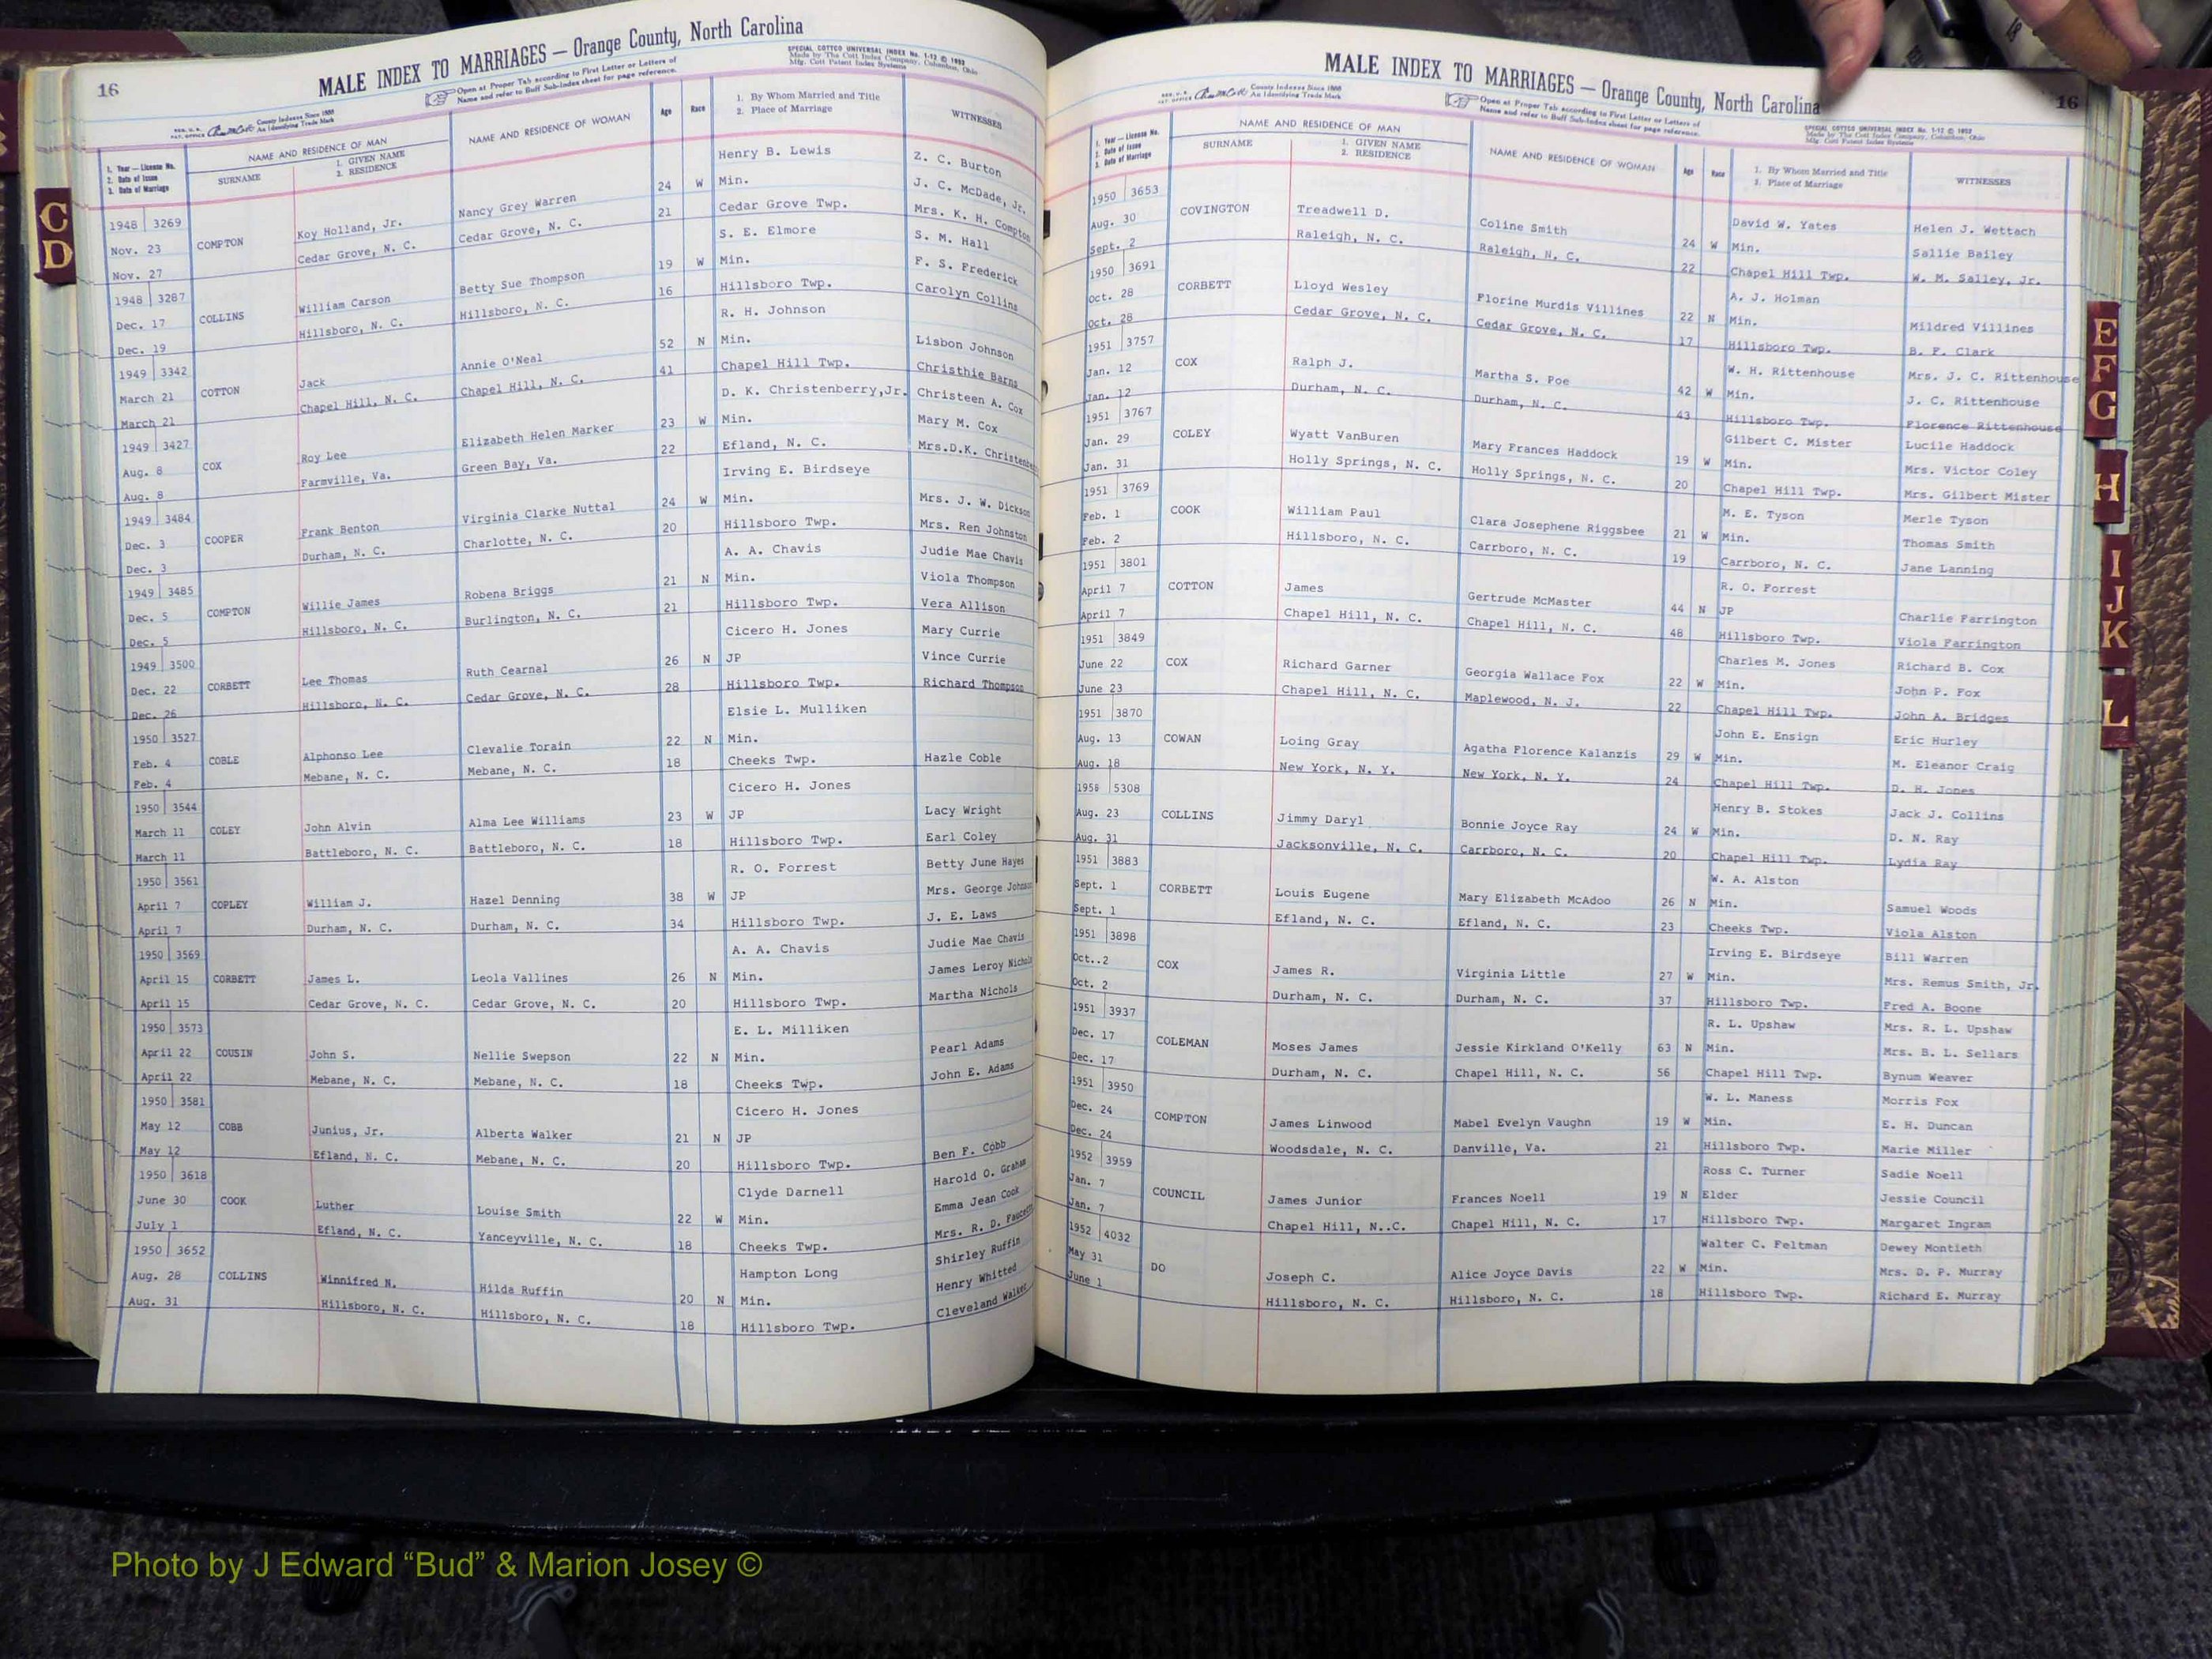 16
MALE INDEX TO MARRIAGES — Orange County, North Carolina
Open at Proper Tab according to First Letter or Letters of
Name and refer to Buff Sub-Index sheet for page reference.
SPECIAL COTTCO UNIVERSAL INDEX No. 1-12 © 1952
Made by The Cott Index Company, Columbus, Ohio
Mfg. Cott Patent Index Systems
County Indexes Since 1888
An Identifying Trade Mark
1. Year — License No.
2. Date of Issue
3. Date of Marriage
NAME AND RESIDENCE OF MAN
SURNAME
1. GIVEN NAME
2. RESIDENCE
NAME AND RESIDENCE OF WOMAN
Age
Race
1. By Whom Married and Title
2. Place of Marriage
WITNESSES
1948 3269 Henry B. Lewis Z. C. Burton
Nov. 23 COMPTON Koy Holland, Jr. Nancy Grey Warren 24 W Min. J. C. McDade, Jr.
Nov. 27 Cedar Grove, N. C. Cedar Grove, N. C. 21 Cedar Grove Twp. Mrs. K. H. Compton
1948 3287 S. E. Elmore S. M. Hall
Dec. 17 COLLINS William Carson Betty Sue Thompson 19 W Min. F. S. Frederick
Dec. 19 Hillsboro, N. C. Hillsboro, N. C. 16 Hillsboro Twp. Carolyn Collins
1949 3342 R. H. Johnson
March 21 COTTON Jack Annie O'Neal 52 N Min. Lisbon Johnson
March 21 Chapel Hill, N. C. Chapel Hill, N. C. 41 Chapel Hill Twp. Christhie Barns
1949 3427 D. K. Christenberry,Jr. Christeen A. Cox
Aug. 8 COX Roy Lee Elizabeth Helen Marker 23 W Min. Mary M. Cox
Aug. 8 Farmville, Va. Green Bay, Va. 22 Efland, N. C. Mrs.D.K.
1949 3484 Irving E. Birdseye
Dec. 3 COOPER Frank Benton Virginia Clarke Nuttal 24 W Min. Mrs. J. W. Dickson
Dec. 3 Durham, N. C. Charlotte, N. C. 20 Hillsboro Twp. Mrs. Ren Johnston
1949 3485 A. A. Chavis Judie Mae Chavis
Dec. 5 COMPTON Willie James Robena Briggs 21 N Min. Viola Thompson
Dec. 5 Hillsboro, N. C. Burlington, N. C. 21 Hillsboro Twp. Vera Allison
1949 3500 Cicero H. Jones Mary Currie
Dec. 22 CORBETT Lee Thomas Ruth Cearnal 26 N JP Vince Currie
Dec. 26 Hillsboro, N. C. Cedar Grove, N. C. 28 Hillsboro Twp. Richard Thompson
1950 3527 Elsie L. Mulliken
Feb. 4 COBLE Alphonso Lee Clevalie Torain 22 N Min.
Feb. 4 Mebane, N. C. Mebane, N. C. 18 Cheeks Twp. Hazle Coble
1950 3544 Cicero H. Jones
March 11 COLEY John Alvin Alma Lee Williams 23 W JP Lacy Wright
March 11 Battleboro, N. C. Battleboro, N. C. 18 Hillsboro Twp. Earl Coley
1950 3561 R. O. Forrest Betty June Hayes
April 7 COPLEY William J. Hazel Denning 38 W JP Mrs. George Johnson
April 7 Durham, N. C. Durham, N. C. 34 Hillsboro Twp. J. E. Laws
1950 3569 A. A. Chavis Judie Mae Chavis
April 15 CORBETT James L. Leola Vallines 26 N Min. James Leroy Nichols
April 15 Cedar Grove, N. C. Cedar Grove, N. C. 20 Hillsboro Twp. Martha Nichols
1950 3573 E. L. Milliken
April 22 COUSIN John S. Nellie Swepson 22 N Min. Pearl Adams
April 22 Mebane, N. C. Mebane, N. C. 18 Cheeks Twp. John E. Adams
1950 3581 Cicero H. Jones
May 12 COBB Junius, Jr. Alberta Walker 21 N JP
May 12 Efland, N. C. Mebane, N. C. 20 Hillsboro Twp. Ben F. Cobb
1950 3618 Clyde Darnell Harold O. Graham
June 30 COOK Luther Louise Smith 22 W Min. Emma Jean Cook
July 1 Efland, N. C. Yanceyville, N. C. 18 Cheeks Twp. Mrs. R. D. Faucette
1950 3652 Hampton Long Shirley Ruffin
Aug. 28 COLLINS Winnifred N. Hilda Ruffin 20 N Min. Henry Whitted
Aug. 31 Hillsboro, N. C. Hillsboro, N. C. 18 Hillsboro Twp. Cleveland Walker
MALE INDEX TO MARRIAGES — Orange County, North Carolina
16
County Indexes Since 1888
An Identifying Trade Mark
Open at Proper Tab according to First Letter or Letters of
Name and refer to Buff Sub-Index sheet for page reference.
SPECIAL COTTCO UNIVERSAL INDEX No. 1-12 © 1952
Made by The Cott Index Company, Columbus, Ohio
Mfg. Cott Patent Index Systems
1. Year — License No.
2. Date of Issue
3. Date of Marriage
NAME AND RESIDENCE OF MAN
SURNAME
1. GIVEN NAME
2. RESIDENCE
NAME AND RESIDENCE OF WOMAN
Age
Race
1. By Whom Married and Title
2. Place of Marriage
WITNESSES
1950 3653 David W. Yates Helen J. Wettach
Aug. 30 COVINGTON Treadwell D. Coline Smith 24 W Min. Sallie Bailey
Sept. 2 Raleigh, N. C. Raleigh, N. C. 22 Chapel Hill Twp. W. M. Salley, Jr.
1950 3691 A. J. Holman
Oct. 28 CORBETT Lloyd Wesley Florine Murdis Villines 22 N Min. Mildred Villines
Oct. 28 Cedar Grove, N. C. Cedar Grove, N. C. 17 Hillsboro Twp. B. F. Clark
1951 3757 W. H. Rittenhouse Mrs. J. C. Rittenhouse
Jan. 12 COX Ralph J. Martha S. Poe 42 W Min. J. C. Rittenhouse
Jan. 12 Durham, N. C. Durham, N. C. 43 Hillsboro Twp. Florence Rittenhouse
1951 3767 Gilbert C. Mister Lucile Haddock
Jan. 29 COLEY Wyatt VanBuren Mary Frances Haddock 19 W Min. Mrs. Victor Coley
Jan. 31 Holly Springs, N. C. Holly Springs, N. C. 20 Chapel Hill Twp. Mrs. Gilbert Mister
1951 3769 M. E. Tyson Merle Tyson
Feb. 1 COOK William Paul Clara Josephene Riggsbee 21 W Min. Thomas Smith
Feb. 2 Hillsboro, N. C. Carrboro, N. C. 19 Carrboro, N. C. Jane Lanning
1951 3801 R. O. Forrest
April 7 COTTON James Gertrude McMaster 44 N JP Charlie Farrington
April 7 Chapel Hill, N. C. Chapel Hill, N. C. 48 Hillsboro Twp. Viola Farrington
1951 3849 Charles M. Jones Richard B. Cox
June 22 COX Richard Garner Georgia Wallace Fox 22 W Min. John P. Fox
June 23 Chapel Hill, N. C. Maplewood, N. J. 22 Chapel Hill Twp. John A. Bridges
1951 3870 John E. Ensign Eric Hurley
Aug. 13 COWAN Loing Gray Agatha Florence Kalanzis 29 W Min. M. Eleanor Craig
Aug. 18 New York, N. Y. New York, N. Y. 24 Chapel Hill Twp. D. H. Jones
1958 5308 Henry B. Stokes Jack J. Collins
Aug. 23 COLLINS Jimmy Daryl Bonnie Joyce Ray 24 W Min. D. N. Ray
Aug. 31 Jacksonville, N. C. Carrboro, N. C. 20 Chapel Hill Twp. Lydia Ray
1951 3883 W. A. Alston
Sept. 1 CORBETT Louis Eugene Mary Elizabeth McAdoo 26 N Min. Samuel Woods
Sept. 1 Efland, N. C. Efland, N. C. 23 Cheeks Twp. Viola Alston
1951 3898 Irving E. Birdseye Bill Warren
Oct..2 COX James R. Virginia Little 27 W Min. Mrs. Remus Smith, Jr.
Oct. 2 Durham, N. C. Durham, N. C. 37 Hillsboro Twp. Fred A. Boone
1951 3937 R. L. Upshaw Mrs. R. L. Upshaw
Dec. 17 COLEMAN Moses James Jessie Kirkland O'Kelly 63 N Min. Mrs. B. L. Sellars
Dec. 17 Durham, N. C. Chapel Hill, N. C. 56 Chapel Hill Twp. Bynum Weaver
1951 3950 W. L. Maness Morris Fox
Dec. 24 COMPTON James Linwood Mabel Evelyn Vaughn 19 W Min. E. H. Duncan
Dec. 24 Woodsdale, N. C. Danville, Va. 21 Hillsboro Twp. Marie Miller
1952 3959 Ross C. Turner Sadie Noell
Jan. 7 COUNCIL James Junior Frances Noell 19 N Elder Jessie Council
Jan. 7 Chapel Hill, N..C. Chapel Hill, N. C. 17 Hillsboro Twp. Margaret Ingram
1952 4032 Walter C. Feltman Dewey Montieth
May 31 DO Joseph C. Alice Joyce Davis 22 W Min. Mrs. D. P. Murray
June 1 Hillsboro, N. C. Hillsboro, N. C. 18 Hillsboro Twp. Richard E. Murray
C
D
E
F
G
H
I
J
K
L
Photo by J Edward “Bud” & Marion Josey ©